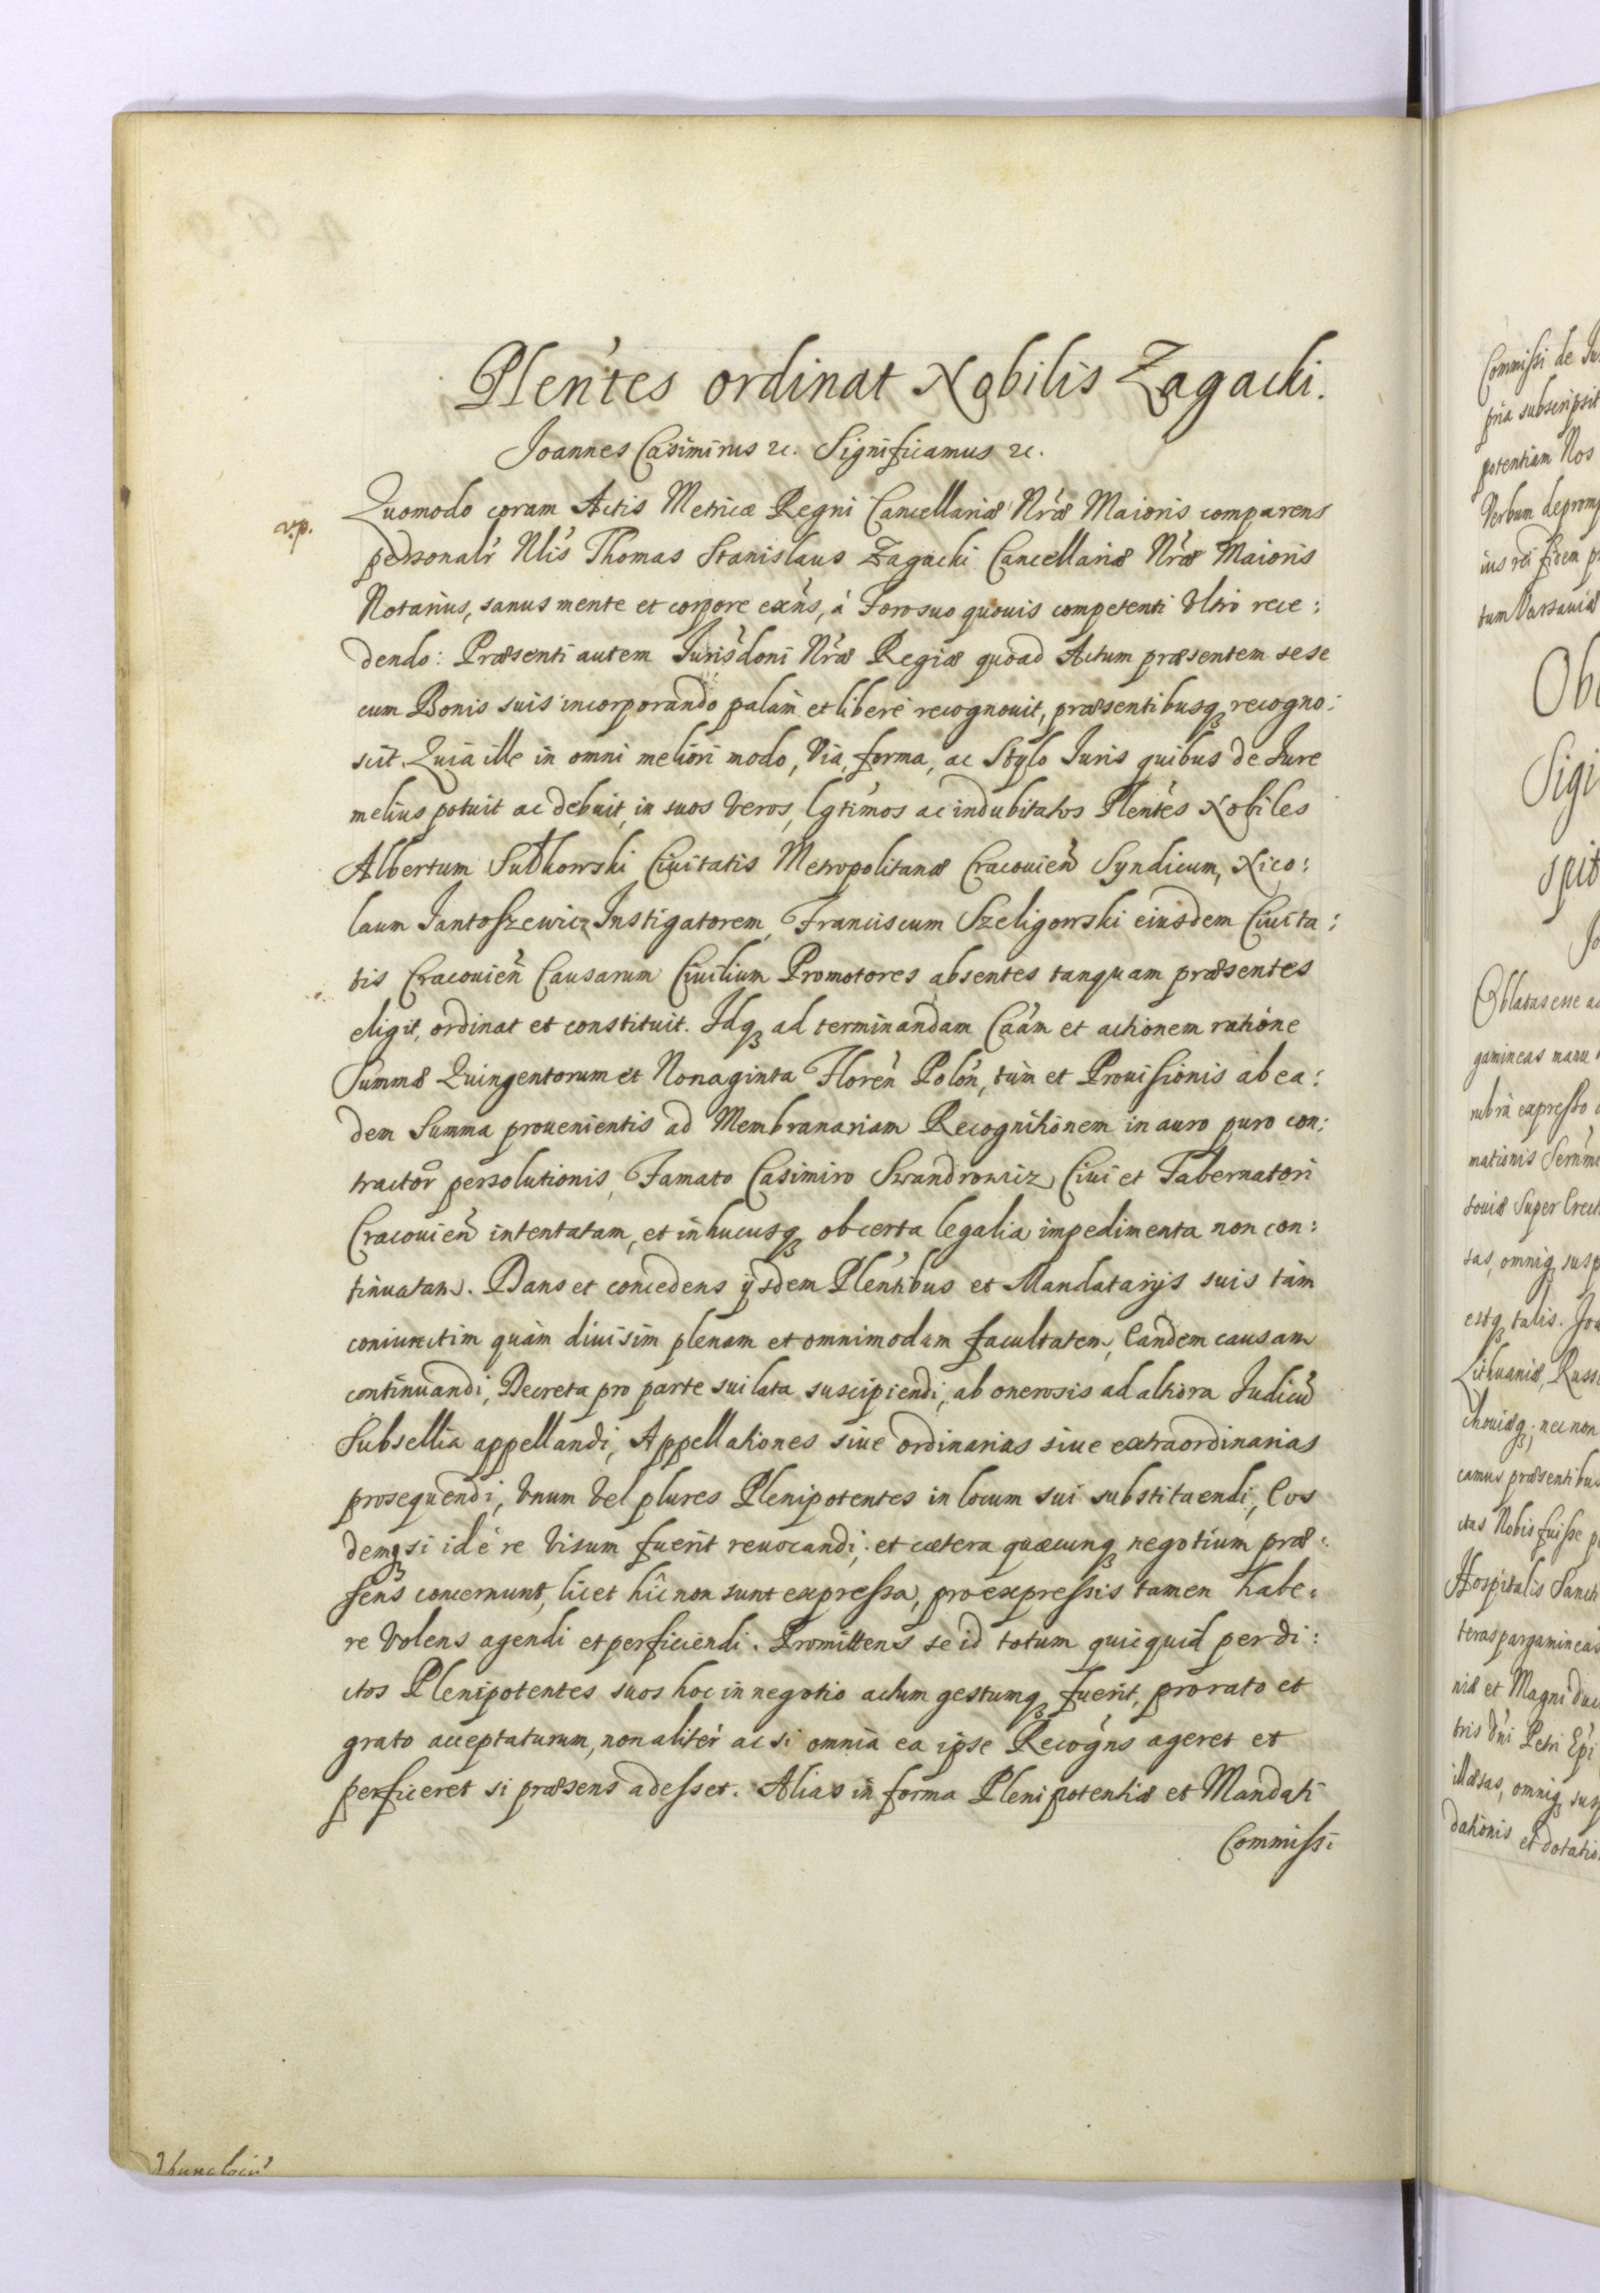 Plen̄tes ordinat Nobilis Zagacki.
Joannes Casimirus ꝛc. Significamus ꝛc.
v.p.
Quomodo coram Actis Metricæ Regni Cancellariæ Nrǽ Maioris comparens
personalr̀ Nlis̀ Thomas Stanislaus Zagacki Cancellariæ Nrǽ Maioris
Notarius, sanus mente et corpore exn̄s, à Foro suo quouis competenti Vltro rece:
dendo: Præsenti autem Jurisd̀oni Nrǽ Regiæ quoad Actum præsentem sese
cum Bonis suis incorporando palàm et liberè recognouit, præsentibusq̨ recogno:
scit. Quia ille in omni meliori modo, Via, forma, ac Stylo Juris quibus de Jure
melius potuit ac debuit, in suos Veros, lgtimos ac indubitatos Plentès Nobiles
Albertum Sutkowski Ciuitatis Metropolitanæ Cracouien̄ Syndicum, Nico:
laum Jantoszewicz Instigatorem, Franciscum Szeligowski eiusdem Ciuita:
tis Cracouien̄ Causarum Ciuilium Promotores absentes tanquam præsentes
eligit, ordinat et constituit. Idq̨ ad terminandam Caám et actionem ratione
Summæ Quingentorum et Nonaginta Floren̄ Polon̄, tùm et Prouisionis ab ea:
dem Summa prouenientis ad Membranariam Recognitionem in auro puro con:
tractoꝝ persolutionis, Famato Casimiro Swandrowicz Ciui et Tabernatori
Cracouien̄ intentatam, et in hucusq̨ ob certa legalia impedimenta non con:
tinuatam. Dans et concedens ijsdem Plentibus et Mandatarijs suis tàm
coniunctim quàm diuisim plenam et omnimodam facultatem, Eandem causam
continuandi, Decreta pro parte sui lata suscipiendi, ab onerosis ad altiora Judicū
Subsellia appellandi, Appellationes siue ordinarias siue extraordinarias
prosequendi, Vnum Vel plures Plenipotentes in locum sui substituendi, Eos
demq̨ si id è re Visum fuerit reuocandi, et cætera quæcunq̨ negotium præ:
sens concernunt, licet hîc non sunt expressa, pro expressis tamen habe:
re Volens agendi et perficiendi. Promittens se id totum quicquid per di:
ctos Plenipotentes suos hoc in negotio actum gestumq̨ fuerit, pro rato et
grato acceptaturum, non alitér ac si omnia ea ipse Recogns̀ ageret et
perficeret si præsens adesset. Alias in forma Plenipotentiæ et Mandati
Commissi
Commissi de Ju
pria subscripsit
potentiam Nos
Verbum depromp
ius rei fidem p
tum Varsauiæ
Obl
Sigi
spit
Jo
Oblatas esse ac
gamineas manu
rubrà expresso
mationis Sernm̄
touiæ Super Erect
sas, omniq̨ susp
estq̨ talis. Joa
Lithuaniæ, Russi
chouiæq̨; nec non
camus præsentibus
ctas Nobis fuisse p
Hospitalis Sancti
teras pargamineas
niæ et Magni duc
tris dn̄i Petri Epi
illæsas, omniq̨ susp
dationis et dotatio